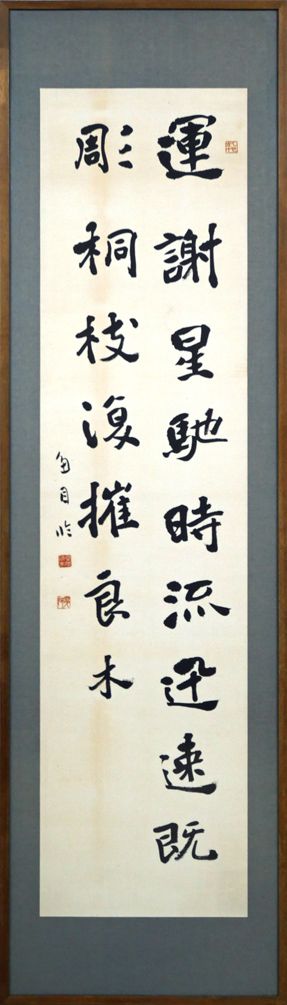 運謝星馳時流迅速既
彫桐枝復摧良木